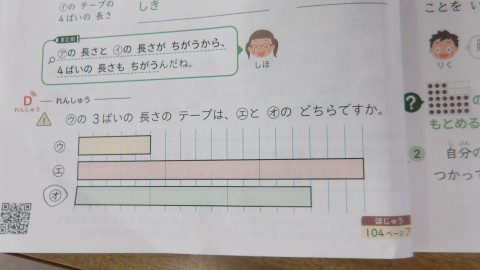 ㋑の テープの
4ばいの 長さ
しき
まとめ
㋐の 長さと ㋑の 長さが ちがうから、
4ばいの 長さも ちがうんだね。
しほ
D れんしゅう
れんしゅう
㋒の 3ばいの 長さの テープは、㋓と ㋔の どちらですか。
㋒
㋓
㋔
ほじゅう
104ページ
ことを
りく
?
もとめる
2 自分の
つかって